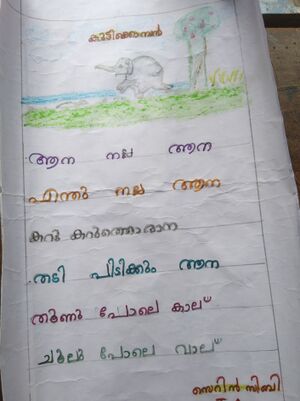 കുട്ടിക്കൊമ്പൻ
ആന നല്ല ആന
എന്തു നല്ല ആന
കറു കറുത്തൊരാന
തടി പിടിക്കും ആന
തൂണു പോലെ കാല്
ചൂലു പോലെ വാല്
സെറിൻ സിബി